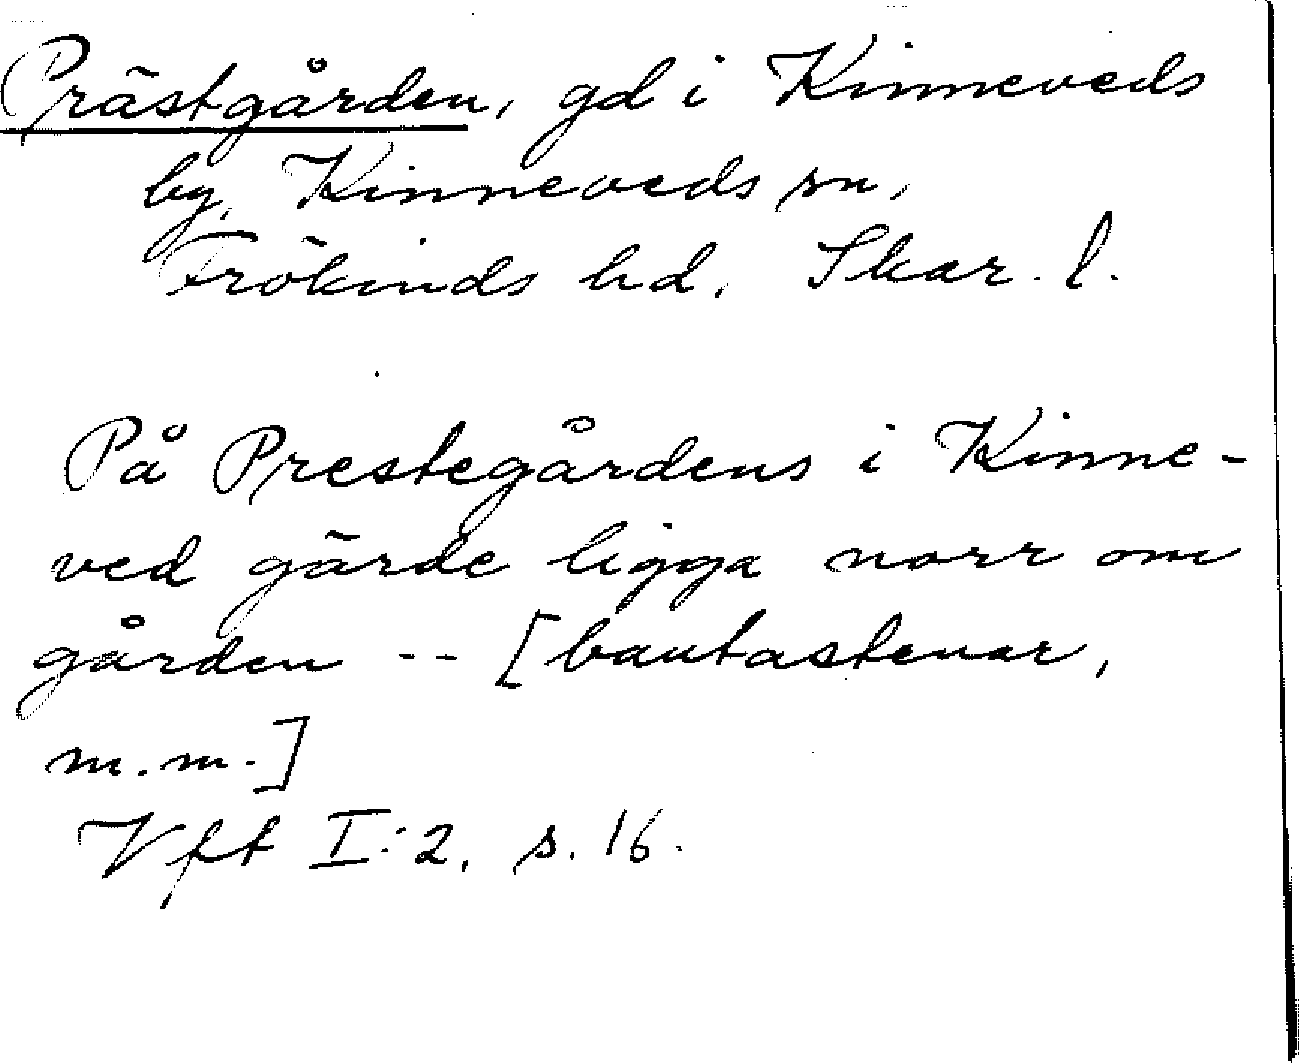 Prästgården, gd i Kinneveds
by, Kinneveds sn,
Frökinds hd, Skar. l.
På Prestegårdens i Kinne-
ved gärde ligga norr om
gården -- [bautastenar,
m.m.]
Vft I:2, s. 16.